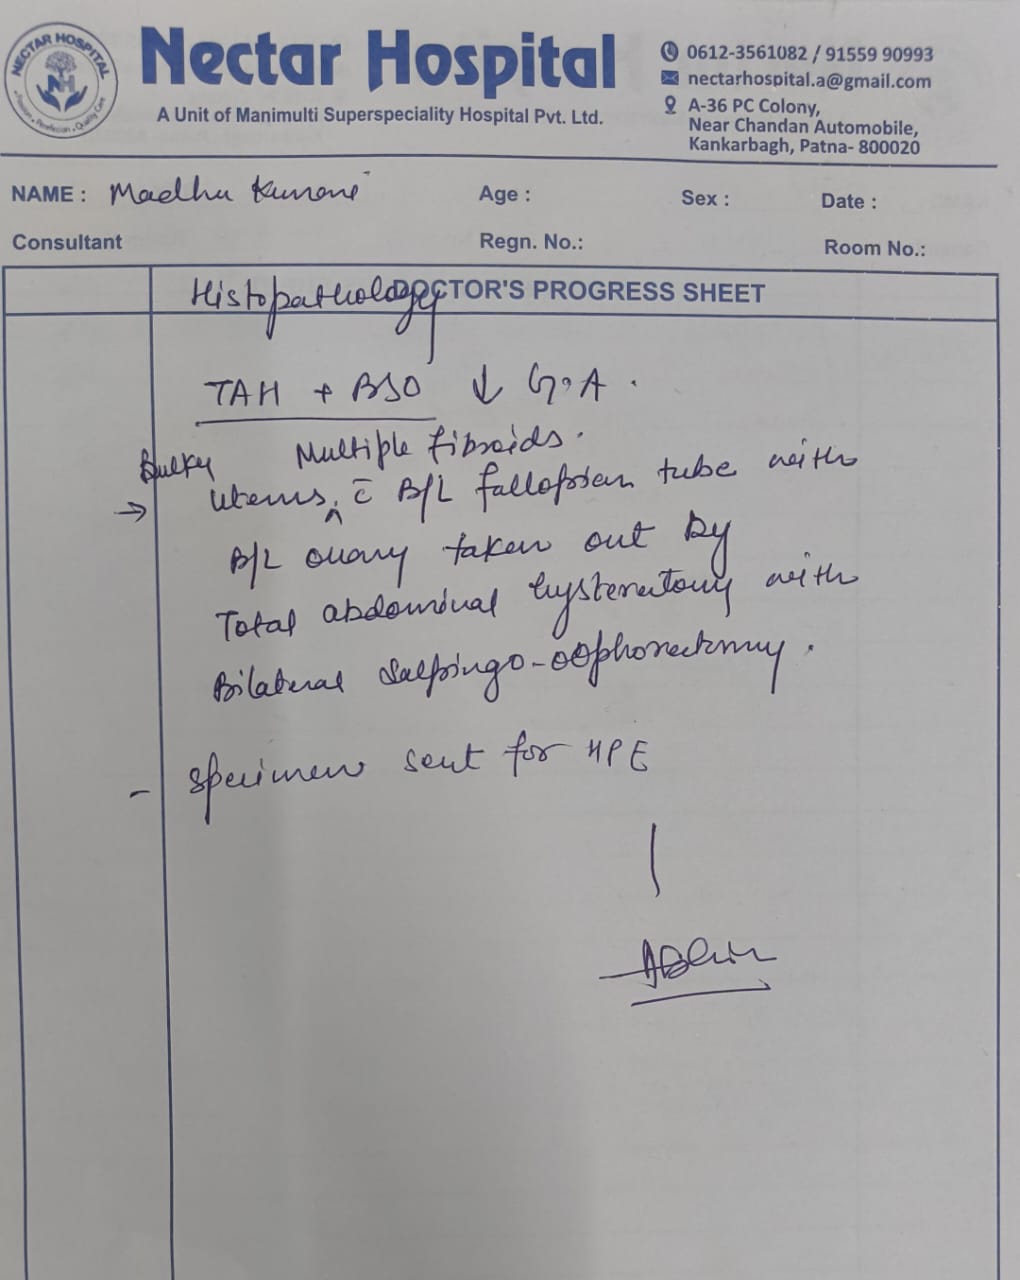 NECTAR HOSPITAL
Nectar Hospital
A Unit of Manimulti Superspeciality Hospital Pvt. Ltd.
0612-3561082 / 91559 90993
nectarhospital.a@gmail.com
A-36 PC Colony,
Near Chandan Automobile,
Kankarbagh, Patna- 800020
NAME : Madhu Kumari Age : Sex : Date :
Consultant Regn. No.: Room No.:
DOCTOR'S PROGRESS SHEET
Histopathology
TAH + BSO ↓ G.A.
Multiple fibroids.
Bulky
→ Uterus ‸ c̄ B/L fallopian tube with
B/L ovary taken out by
Total abdominal hysterectomy with
Bilateral Salpingo-oophorectomy.
- specimen sent for HPE